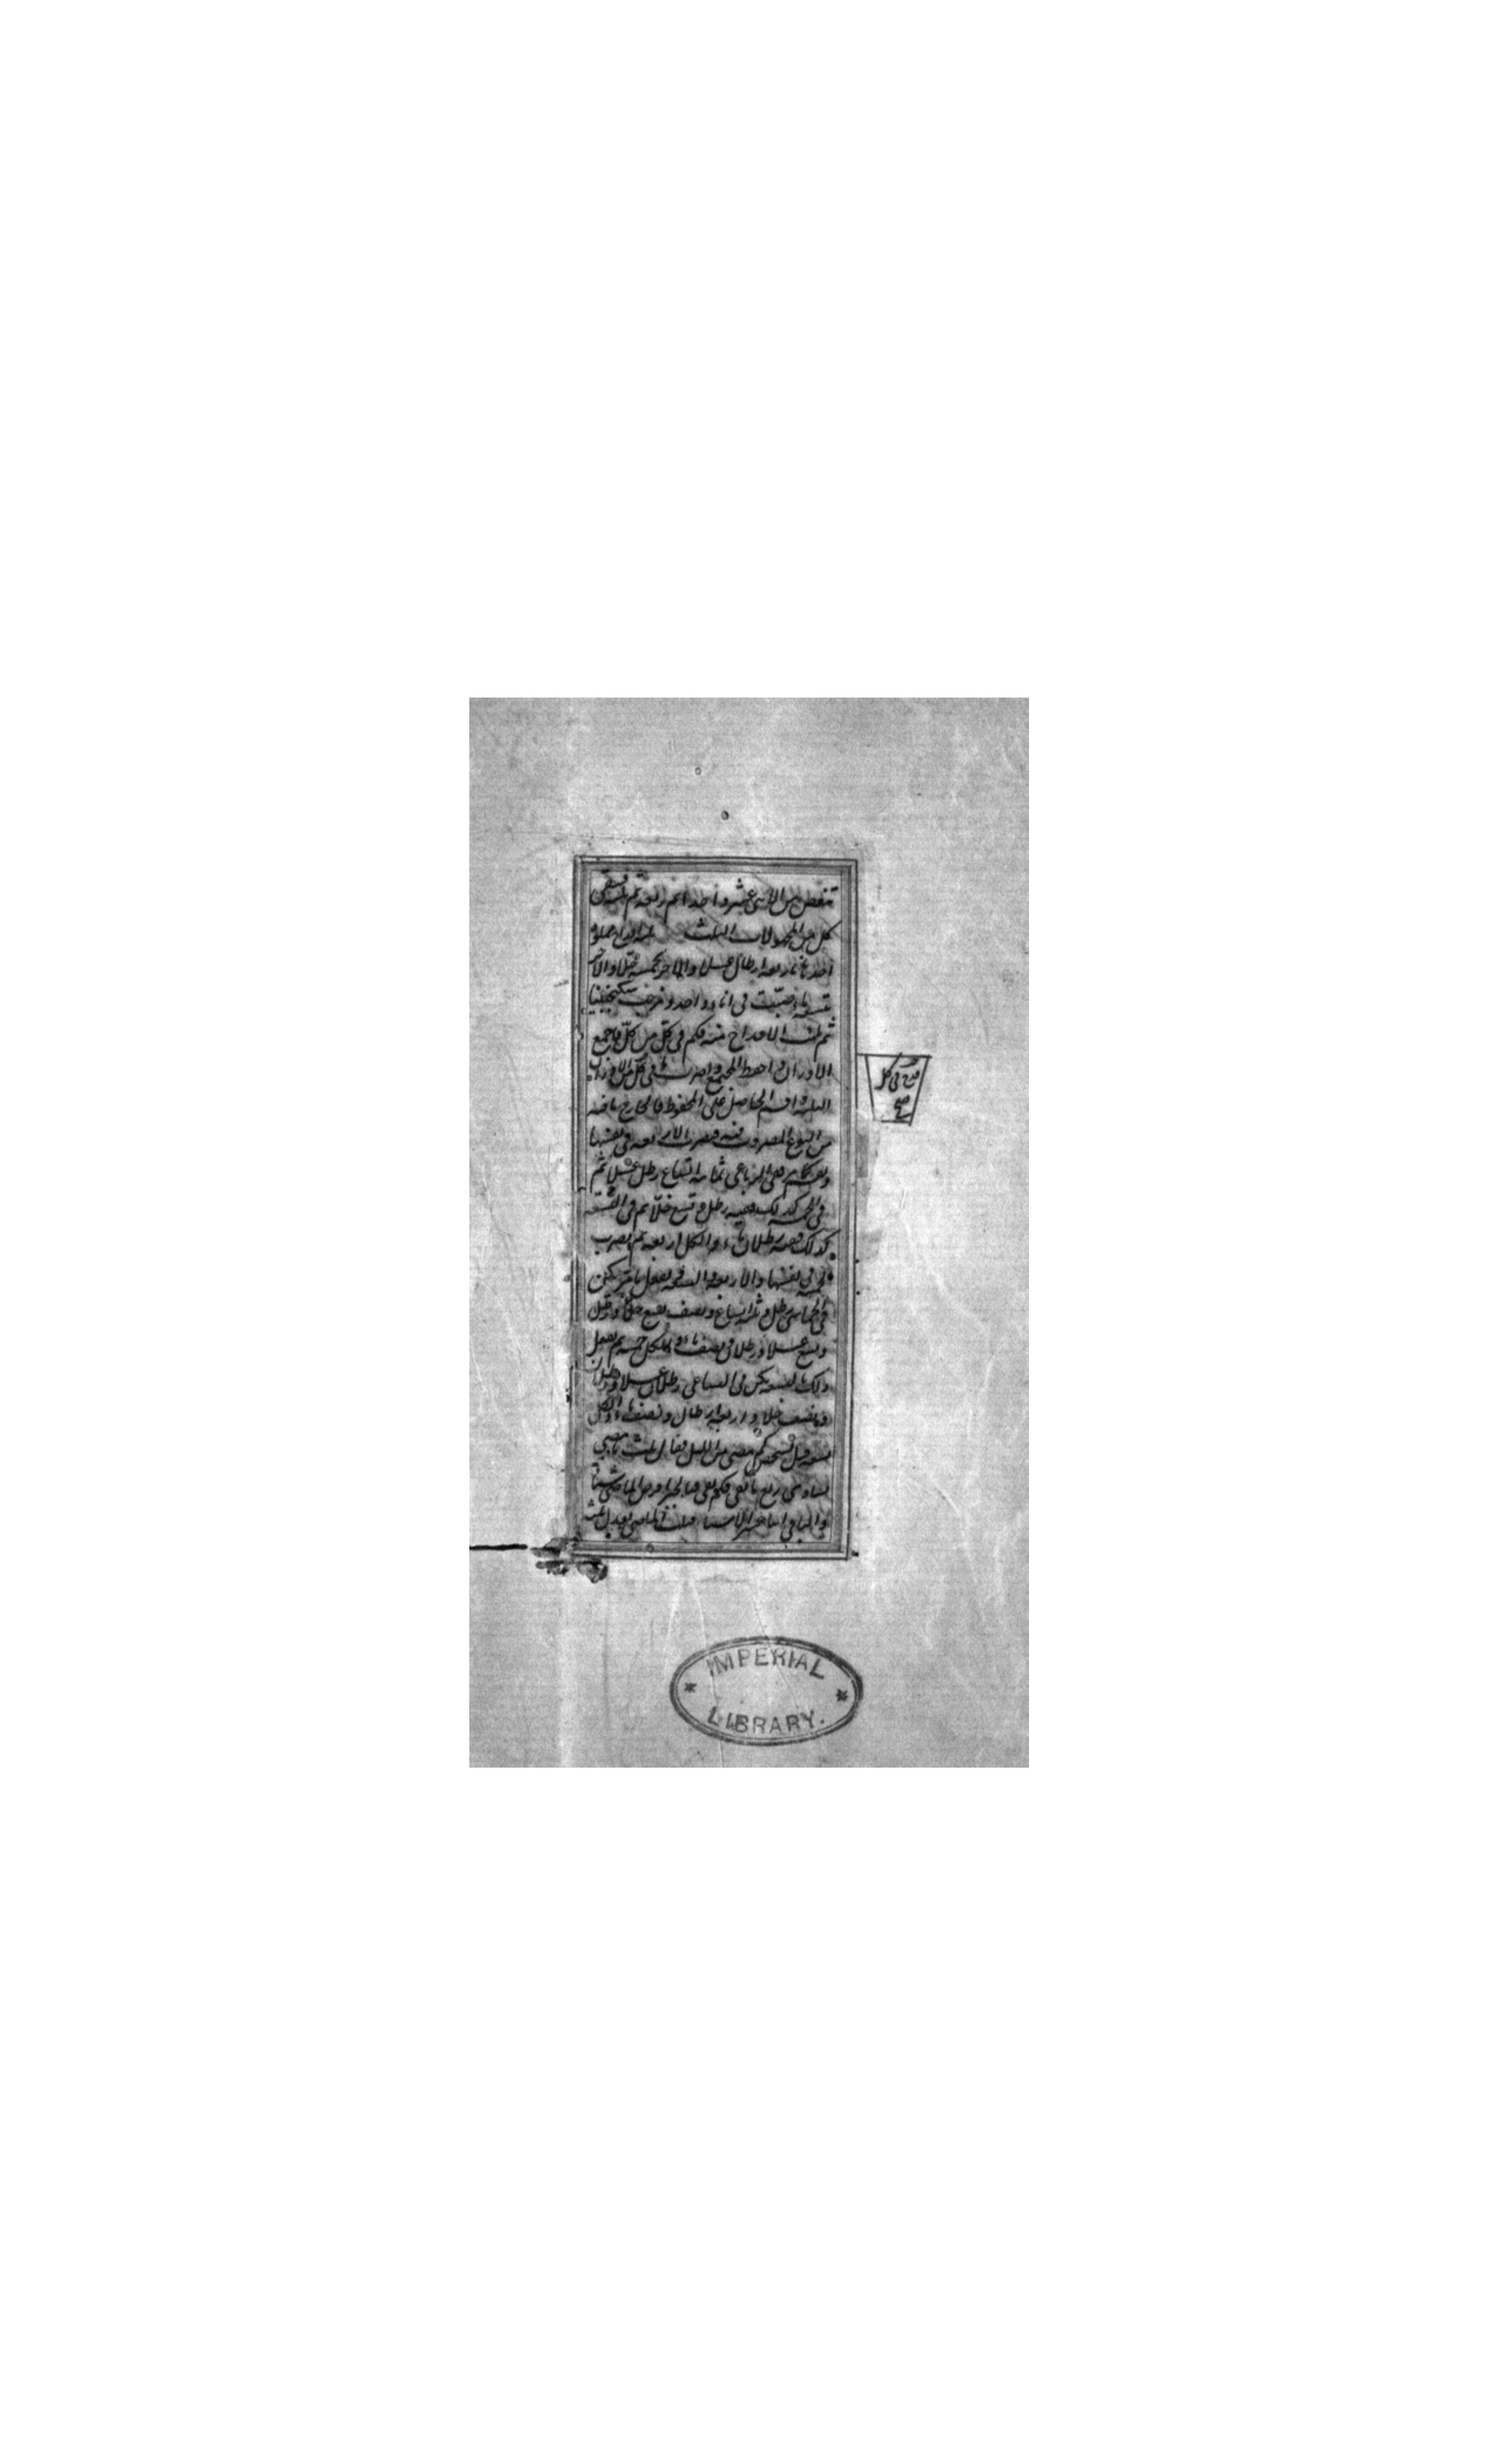 تنقص من الاثنى عشر واحدا ثم اربعة ثم ثلثة فيبقى
كل من المجهولات الثلث ثلثة اقداح مملوة
احدها باربعة ارطال عسلا والاخر بخمسة خلا والاخر
بتسعة ماء صبت فى اناء واحد ومزجت سكنجبينا
ثم ملئت الاقداح منه فكم فى كل من كل فاجمع
الاوزان واحفظ المجتمع واضرب ما فى كل من الاوزان
الثلثة واقسم الحاصل على المحفوظ فالخارج ما فيه
من النوع المضروب فيه فتضرب الاربعة فى نفسها
وتقسم كما مر ففى الرباعى ثمانية اتساع رطل عسلا ثم
فى الخمسة كذلك ففيه رطل وتسع خلا ثم فى التسعة
كذلك ففيه رطلان ماء والكل اربعة ثم تضرب
الخمسة فى نفسها والاربعة والتسعة فتفعل ما مر يكن
فى الخماسى رطل وثلثة اتساع ونصف تسع خلا ورطل
وتسع عسلا ورطلان ونصف ماء والكل خمسة ثم تفعل
ذلك بالتسعة يكن فى التساعى رطلان عسلا ورطلان
ونصف خلا واربعة ارطال ونصف ماء والكل
تسعة قيل لشخص كم مضى من الليل فقال ثلث ما مضى
يساوى ربع ما بقى فكم بقى فبالجبر افرض الماضى شيئا
والباقى اثنا عشر الا شيئا فثلث الماضى يعدل ثلثة
قدح فى كل
IMPERIAL
LIBRARY.